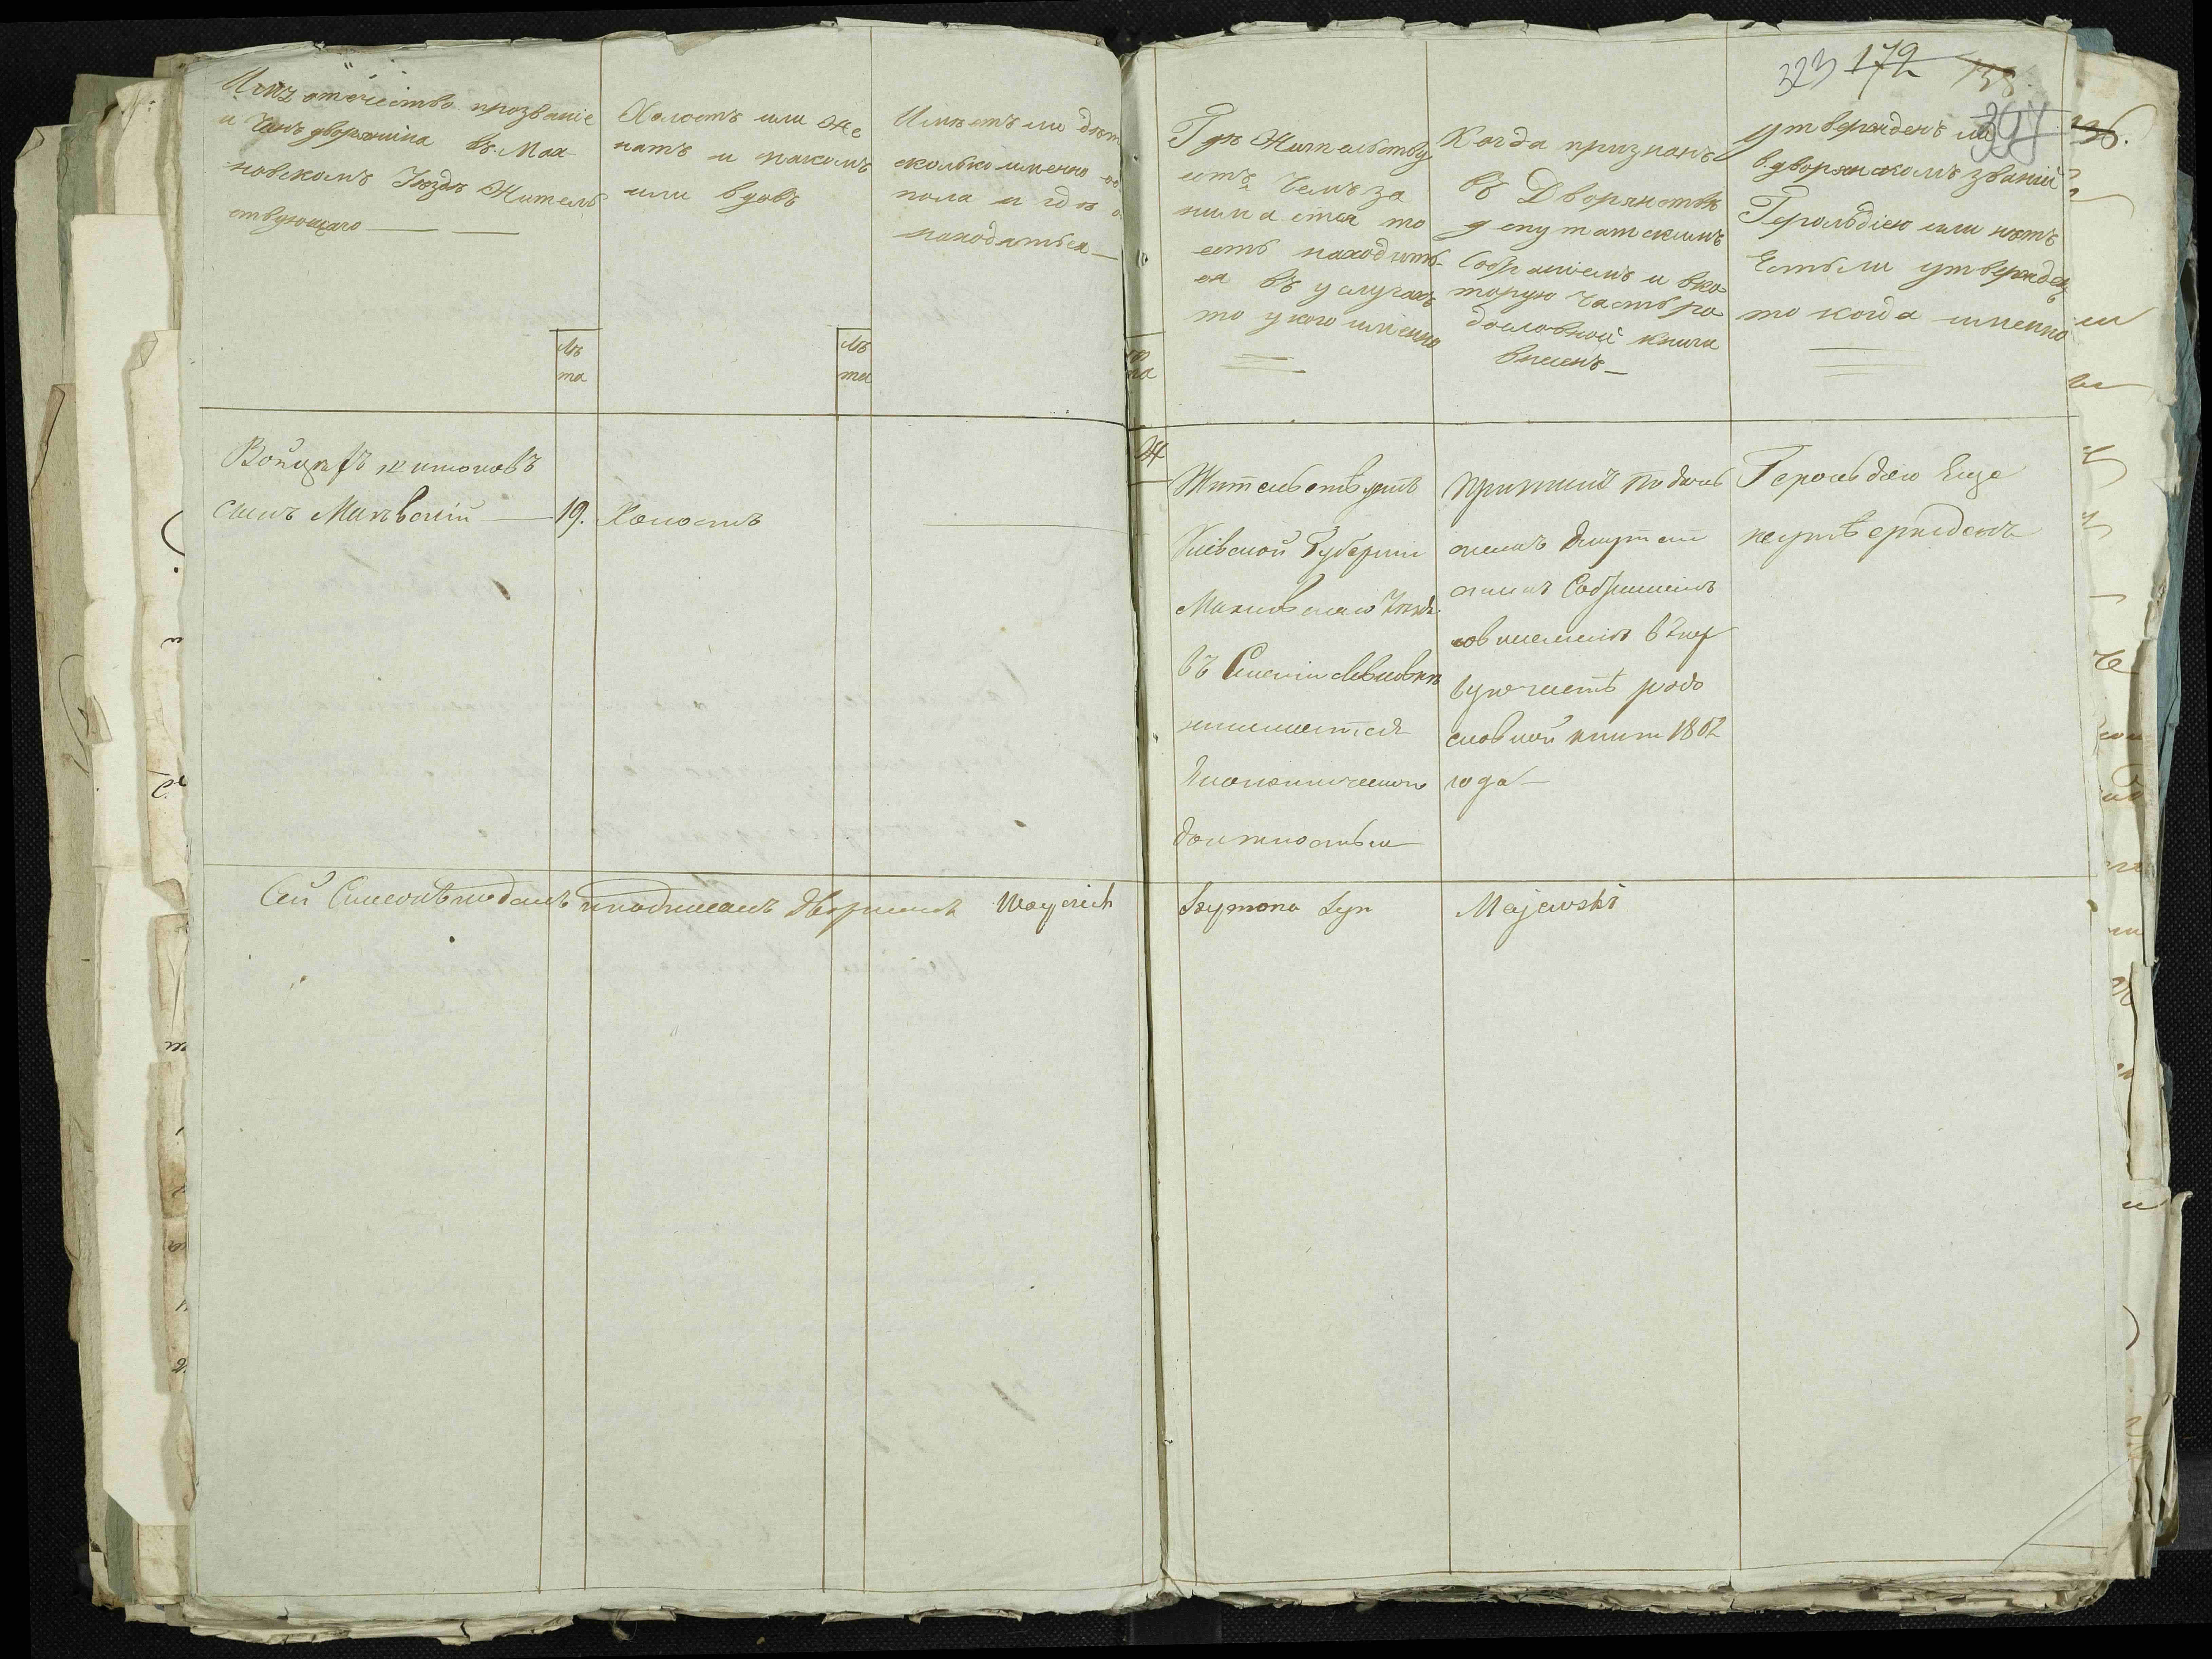 323 172 138.
394
Имя отечество прозваніе
и Чинъ дворянина въ Мах
новскомъ Уѣздѣ Житель
ствующаго
Лѣ
та
Холостъ или Же
натъ и накомъ
или вдовъ
Лѣ
та
Имѣетъ ли дѣт
сколько именно
пола и гдѣ
находяться
Гдѣ Жительству
етъ Чемъ за
нимается то
есть находить
ся въ услугахъ
то укого именно
Когда признанъ
въ Дворянствѣ
депутатскимъ
Собраніемъ и вко
торую Часть ро
дословной книги
внесенъ
Утвержденъ ли
вдворянскомъ званіи
Герольдіею или нѣтъ
Естьли утвержденъ
то когда именно
Войцехъ Шимоновъ
сынъ Маевскій 19.
Холостъ
Жительствуетъ
Кіевской Губерніи
Махновскаго Уѣзда
въ Селеніи
занимается
Экономическою
должностью
Признанъ Подоль
скимъ Депутат
скимъ Собраніемъ
совнесеніемъ в
вую часть родо
словной книги 1802
года
Герольдіею Еще
неутвержденъ
Сей подписалъ Дворянинъ Woyciech Szymona Syn Majewski